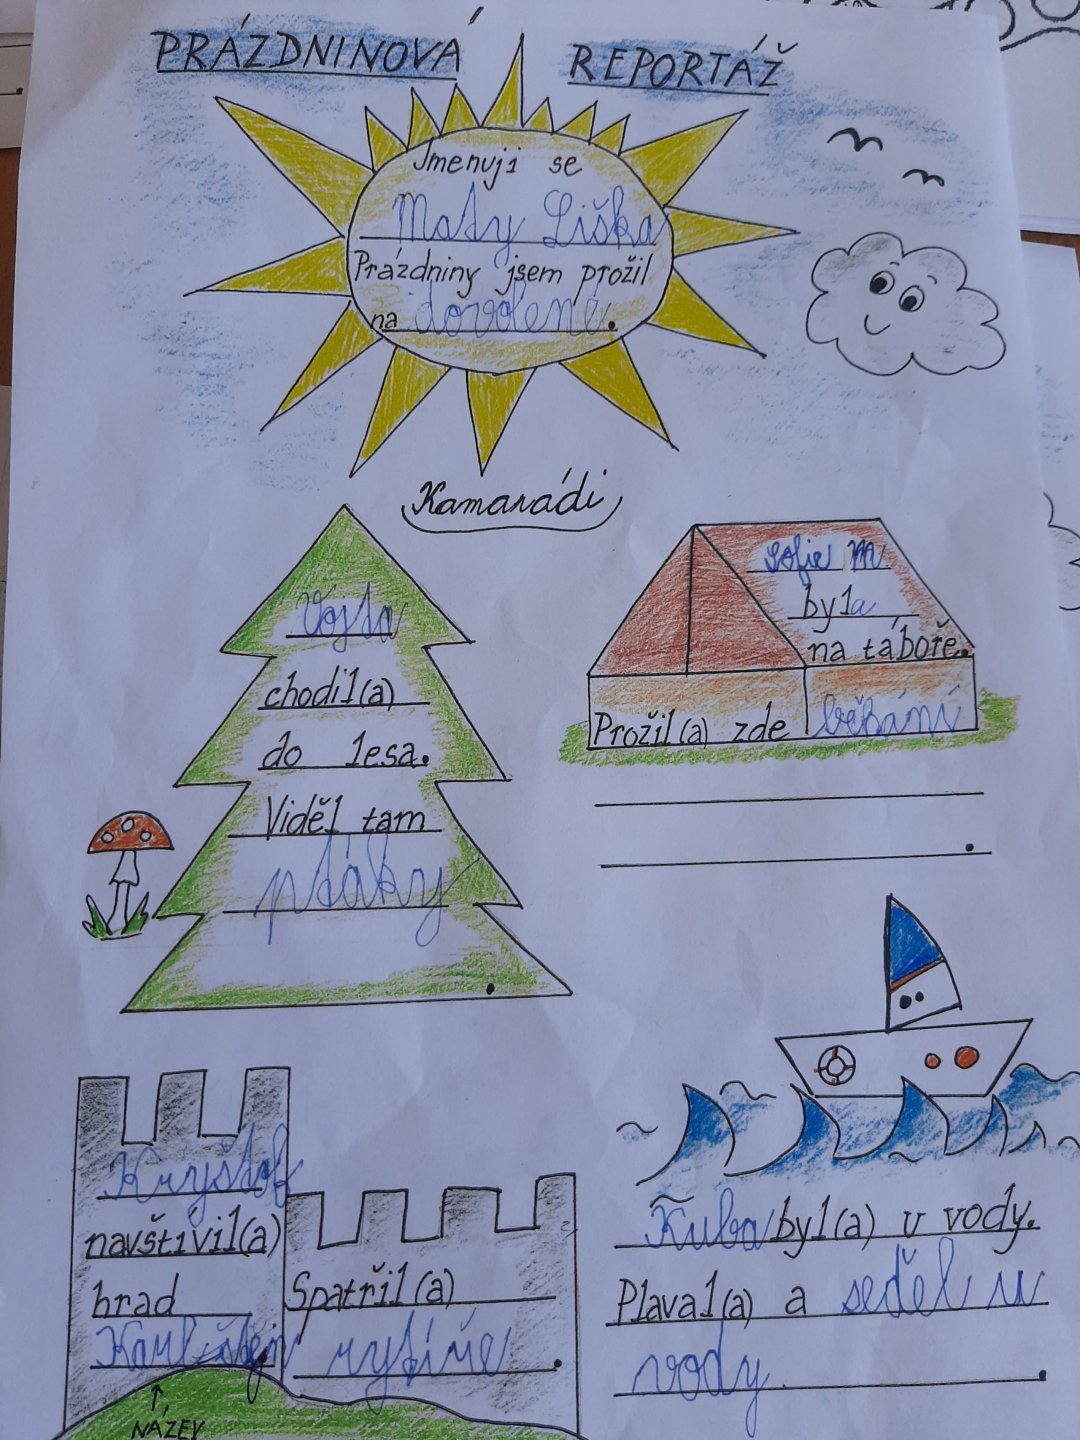 PRÁZDNINOVÁ REPORTÁŽ
Jmenuji se
Maty Liška
Prázdniny jsem prožil
na dovolené.
Kamarádi
Vojta
chodil(a)
do lesa.
Viděl tam
ptáky
.
Sofie M
byla
na táboře.
Prožil(a) zde běhání
.
Kryštof
navštívil(a)
hrad
Karlštejn
↑
NÁZEV
Spatřil(a)
rytíře.
Kuba byl(a) u vody.
Plaval(a) a seděl u
vody.